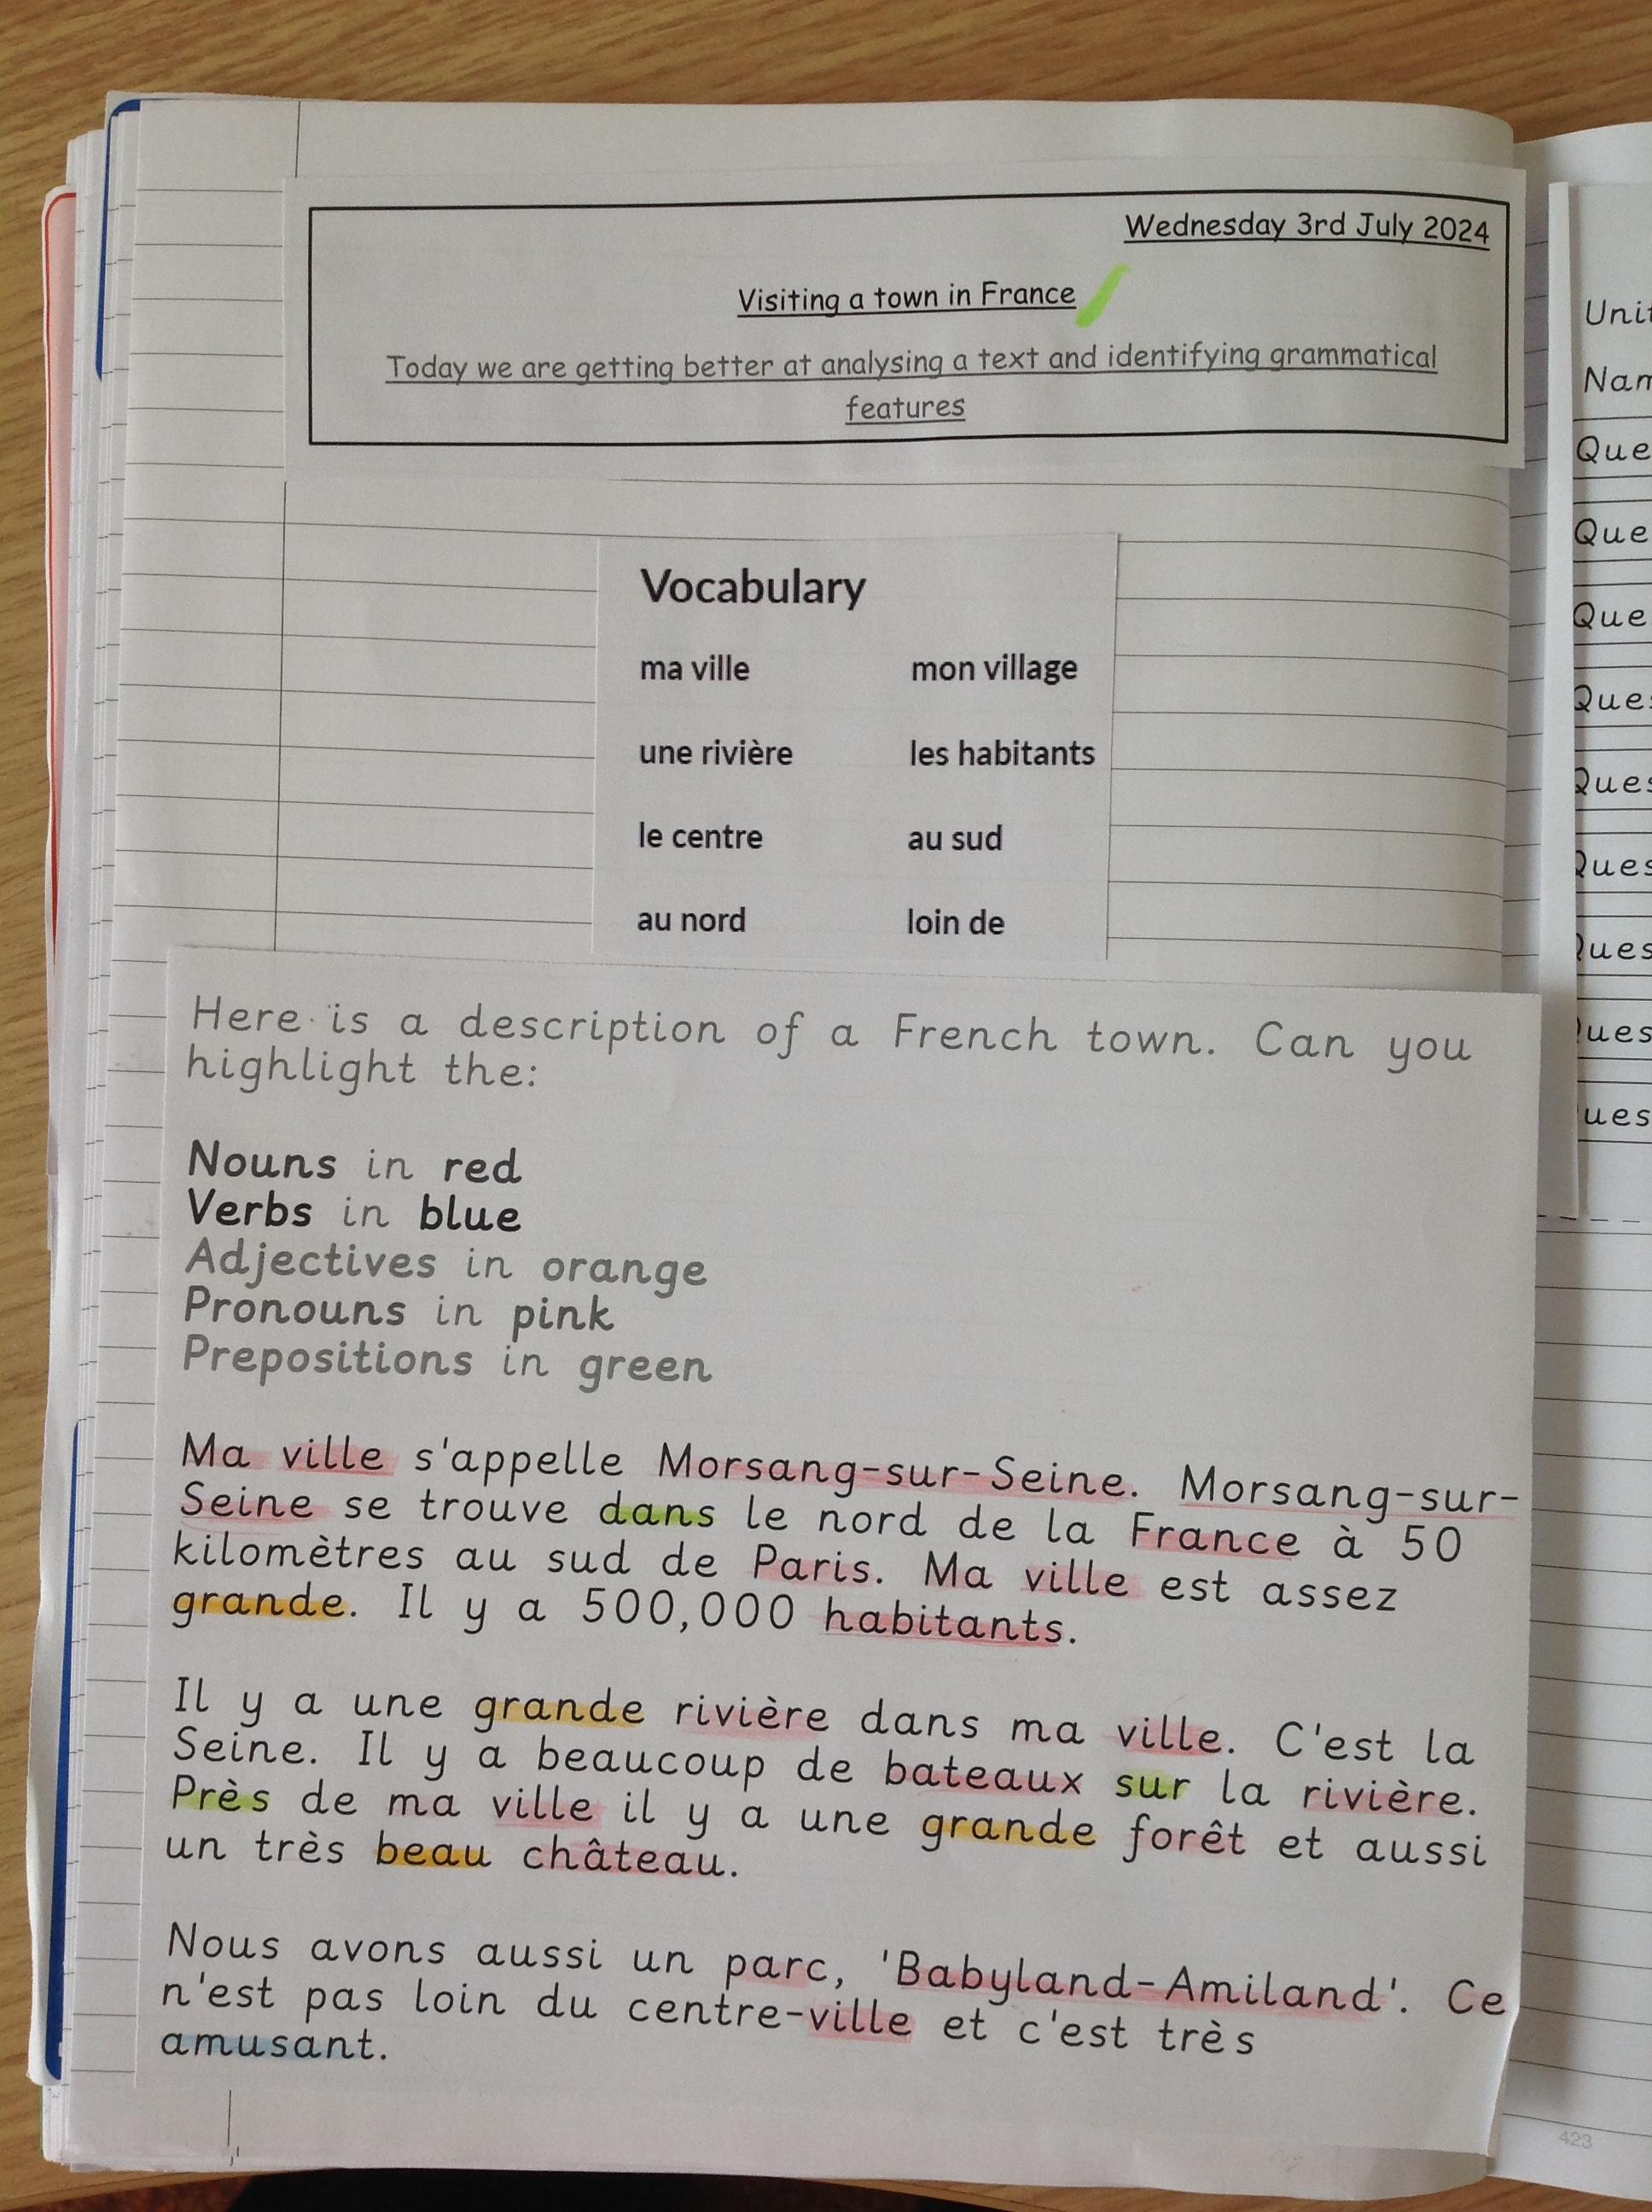 Wednesday 3rd July 2024
Visiting a town in France
Today we are getting better at analysing a text and identifying grammatical
features
Vocabulary
ma ville mon village
une rivière les habitants
le centre au sud
au nord loin de
Here is a description of a French town. Can you
highlight the:
Nouns in red
Verbs in blue
Adjectives in orange
Pronouns in pink
Prepositions in green
Ma ville s'appelle Morsang-sur-Seine. Morsang-sur-
Seine se trouve dans le nord de la France à 50
kilomètres au sud de Paris. Ma ville est assez
grande. Il y a 500,000 habitants.
Il y a une grande rivière dans ma ville. C'est la
Seine. Il y a beaucoup de bateaux sur la rivière.
Près de ma ville il y a une grande forêt et aussi
un très beau château.
Nous avons aussi un parc, 'Babyland-Amiland'. Ce
n'est pas loin du centre-ville et c'est très
amusant.
423